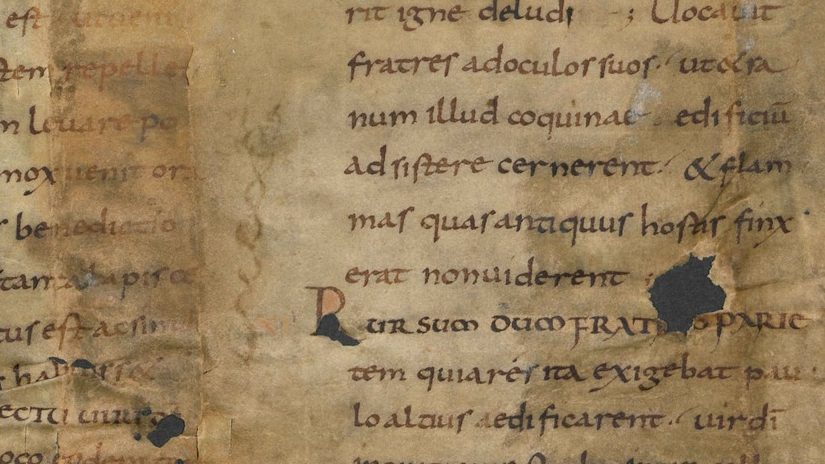 est
tem repelle
n leuare po
mox uenit ora
s benedictio
tanta lapis ce
tus est ac si nu
s habuisse
ECTU UIRI
loco eiusdem
rit igne deludi ; Uocauit
fratres ad oculos suos · ut et sa
num illud coquinae edificiū
adsistere cernerent · & flam
mas quas antiquus hostis finx
erat non uiderent
RURSUM DUM FRATRES PARIE
tem quia res ita exigebat pau
lo altius aedificarent · uir dī